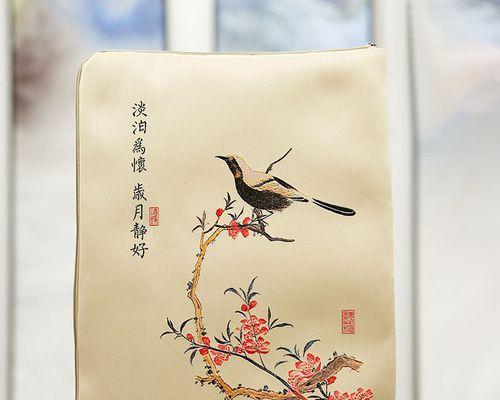 淡泊為懷 歲月靜好